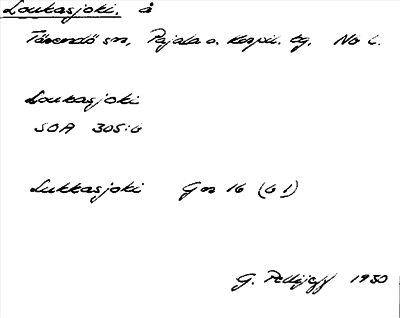 Loukasjoki. å
Tärendö sn, Pajala o. Korpil. tg. Nb l.
Loukasjoki
SOA 305:6
Lukkasjoki Gs 16 (G 1)
G. Pellijeff 1950